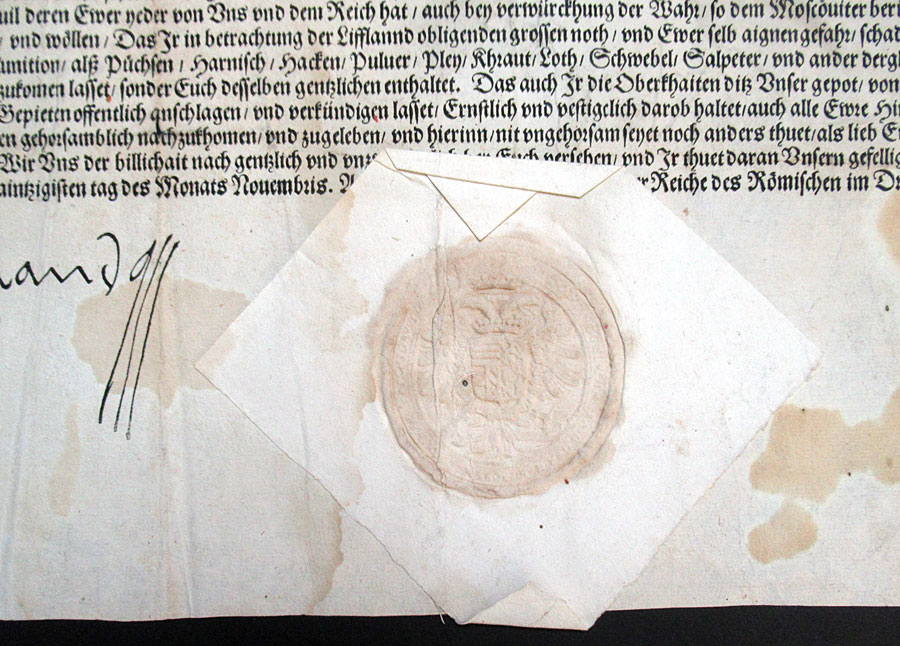 uil deren Ewer yeder von Vns vnd dem Reich hat / auch bey verwürckhung der Wahr / so dem Moscouiter
/ vnd wöllen / Das Jr in betrachtung der Lifflannd obligenden grossen noth / vnd Ewer selb aignen gefahr / schad
munition / alß Püchsen / Harnisch / Hacken / Puluer / Pley / Khraut / Loth / Schwebel / Salpeter / vnd ander dergl
zukomen lasset / sonder Euch desselben gentzlichen enthaltet. Das auch Jr die Oberkhaiten ditz Vnser gepot / von
Gepieten offentlich anschlagen / vnd verkündigen lasset / Ernstlich vnd vestigelich darob haltet / auch alle Ewre Hin
en gehorsamblich nachzukhomen / vnd zugeleben / vnd hierinn / nit vngehorsam seyet noch anders thuet / als lieb E
Wir Vns der billichait nach gentzlich vnd Euch versehen / vnd Jr thuet daran Vnsern gefellig
aintzigisten tag des Monats Nouembris. Reiche des Römischen im Dr
nand